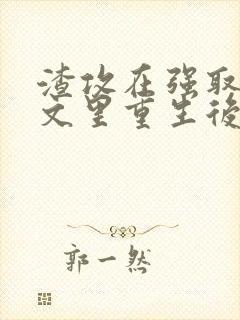 渣攻在强取
文里重生後
郭一然